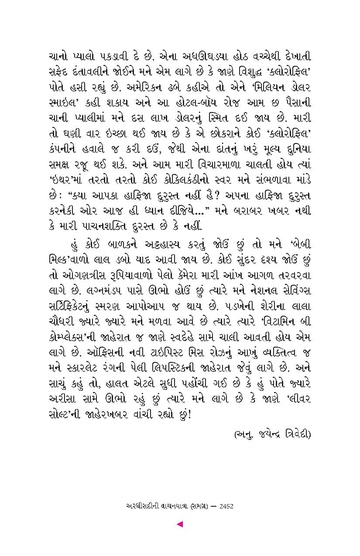 ચાનો પ્યાલો પકડાવી દે છે. એના અધઊઘડયા હોઠ વચ્ચેથી દેખાતી
સફેદ દંતાવલીને જોઈને મને એમ લાગે છે કે જાણે વિશુદ્ધ 'ક્લોરોફિલ'
પોતે હસી રહ્યું છે. અમેરિકન ઢબે કહીએ તો એને 'મિલિયન ડોલર
સ્માઇલ' કહી શકાય અને આ હોટલ-બૉય રોજ આમ છ પૈસાની
ચાની પ્યાલીમાં મને દસ લાખ ડોલરનું સ્મિત દઈ જાય છે. મારી
તો ઘણી વાર ઇચ્છા થઈ જાય છે કે એ છોકરાને કોઈ 'ક્લોરોફિલ'
કંપનીને હવાલે જ કરી દઉં, જેથી એના દાંતનું ખરું મૂલ્ય દુનિયા
સમક્ષ રજૂ થઈ શકે. અને આમ મારી વિચારમાળા ચાલતી હોય ત્યાં
'ઇથર'માં તરતો તરતો કોઈ કોકિલકંઠીનો સ્વર મને સંભળાવા માંડે
છે: "ક્યા આપકા હાફિજા દુરુસ્ત નહીં હૈ? અપના હાફિજા દુરુસ્ત
કરનેકી ઓર આજ હી ધ્યાન દીજિયે..." મને બરાબર ખબર નથી
કે મારી પાચનશક્તિ દુરસ્ત છે કે નહીં.
હું કોઈ બાળકને અટ્ટહાસ્ય કરતું જોઉં છું તો મને 'બેબી
મિલ્ક'વાળો લાલ ડબો યાદ આવી જાય છે. કોઈ સુંદર દૃશ્ય જોઉં છું
તો ઓગણત્રીસ રૂપિયાવાળો પેલો કૅમેરા મારી આંખ આગળ તરવરવા
લાગે છે. લગ્નમંડપ પાસે ઊભો હોઉં છું ત્યારે મને નેશનલ સેવિંગ્સ
સર્ટિફિકેટનું સ્મરણ આપોઆપ જ થાય છે. પડખેની શેરીના લાલા
ચૌધરી જ્યારે જ્યારે મને મળવા આવે છે ત્યારે ત્યારે 'વિટામિન બી
કોમ્પ્લેક્સ'ની જાહેરાત જ જાણે સ્વદેહે સામે ચાલી આવતી હોય એમ
લાગે છે. ઑફિસની નવી ટાઇપિસ્ટ મિસ રોઝનું આખું વ્યક્તિત્વ જ
મને સ્કારલેટ રંગની પેલી લિપસ્ટિકની જાહેરાત જેવું લાગે છે. અને
સાચું કહું તો, હાલત એટલે સુધી પહોંચી ગઈ છે કે હું પોતે જ્યારે
અરીસા સામે ઊભો રહું છું ત્યારે મને લાગે છે કે જાણે 'લીવર
સોલ્ટ'ની જાહેરખબર વાંચી રહ્યો છું!
(અનુ. જયેન્દ્ર ત્રિવેદી)
અરધીસદીની વાચનયાત્રા (સમગ્ર) — 2452